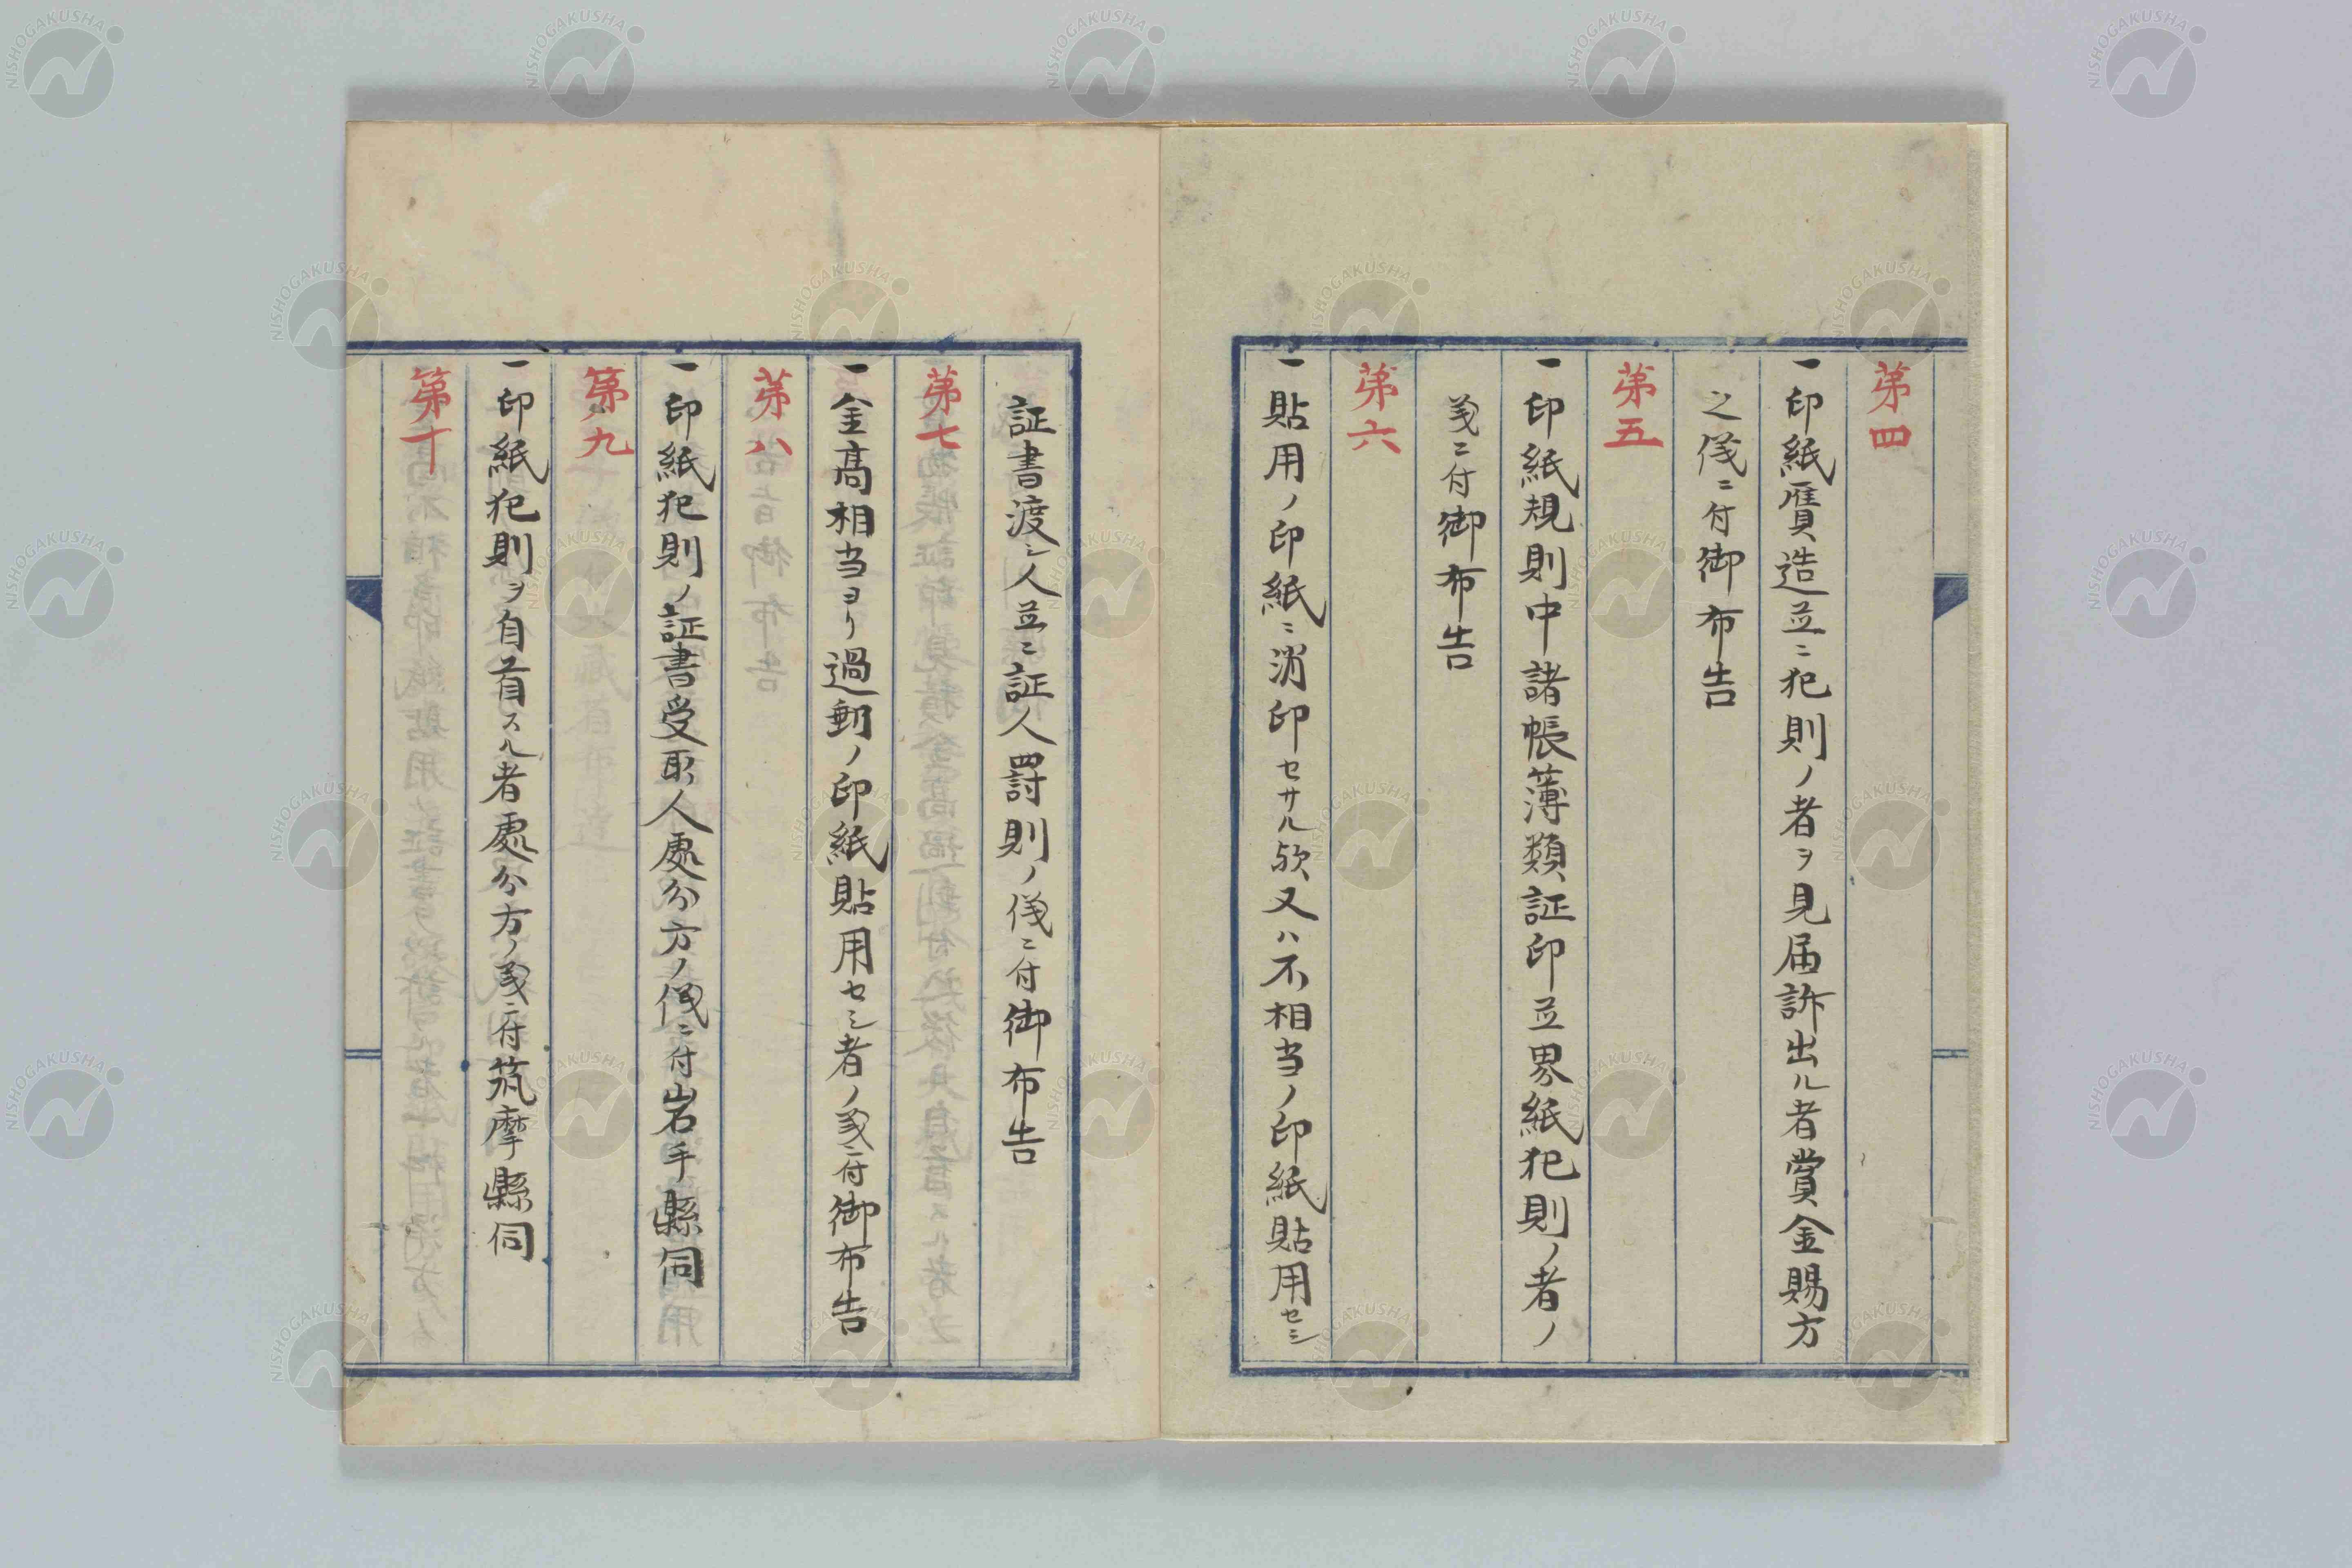 第四
一印紙贋造並ニ犯則ノ者ヲ見届訴出ル者賞金賜方
之儀ニ付御布告
第五
一印紙規則中諸帳薄類証印並界紙犯則ノ者ノ
義ニ付御布告
第六
一貼用ノ印紙ニ消印セサル欤又ハ不相当ノ印紙貼用セシ
証書渡シ人並ニ証人罰則ノ儀ニ付御布告
第七
一金高相当ヨリ過剰ノ印紙貼用セシ者ノ義ニ付御布告
第八
一印紙犯則ノ証書受取人處分方ノ儀ニ付岩手縣伺
第九
一印紙犯則ヲ自首スル者處分方ノ義ニ付筑摩縣伺
第十
NISHOGAKUSHA